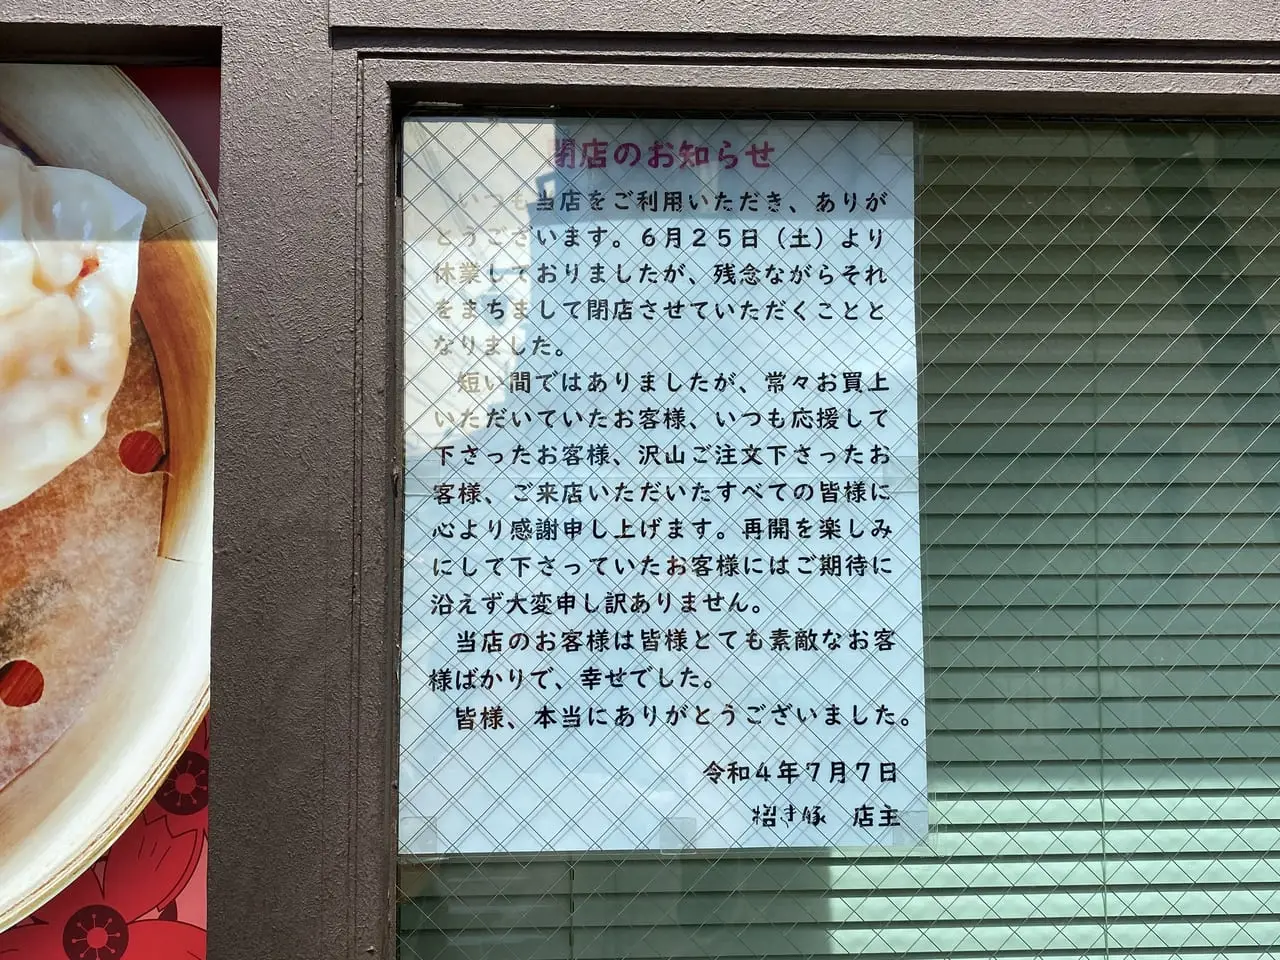 閉店のお知らせ
いつも当店をご利用いただき、ありが
とうございます。６月２５日（土）より
休業しておりましたが、残念ながらそれ
をまちまして閉店させていただくことと
なりました。
短い間ではありましたが、常々お買上
いただいていたお客様、いつも応援して
下さったお客様、沢山ご注文下さったお
客様、ご来店いただいたすべての皆様に
心より感謝申し上げます。再開を楽しみ
にして下さっていたお客様にはご期待に
沿えず大変申し訳ありません。
当店のお客様は皆様とても素敵なお客
様ばかりで、幸せでした。
皆様、本当にありがとうございました。
令和４年７月７日
招き豚　店主